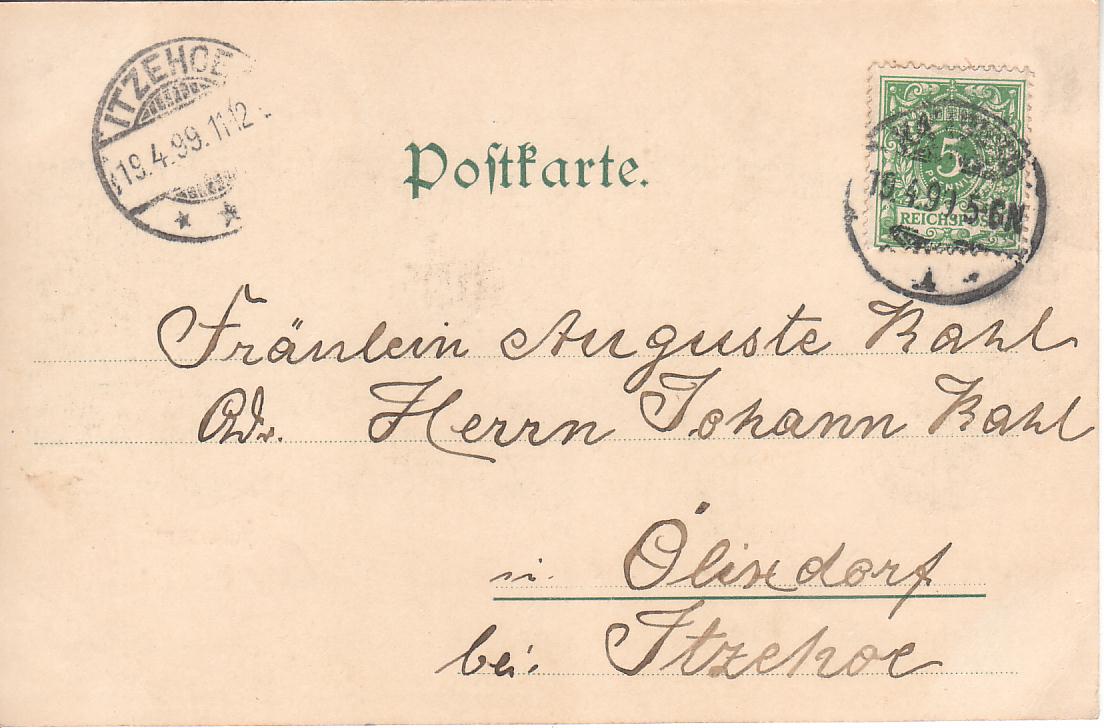 ITZEHOE
19.4.99.11-12
Postkarte.
5
PFENNIG
REICHSPOST
19.4.99 5-6N
Fräulein Auguste Kahl
Adr. Herrn Johann Kahl
in Ölixdorf
bei Itzehoe